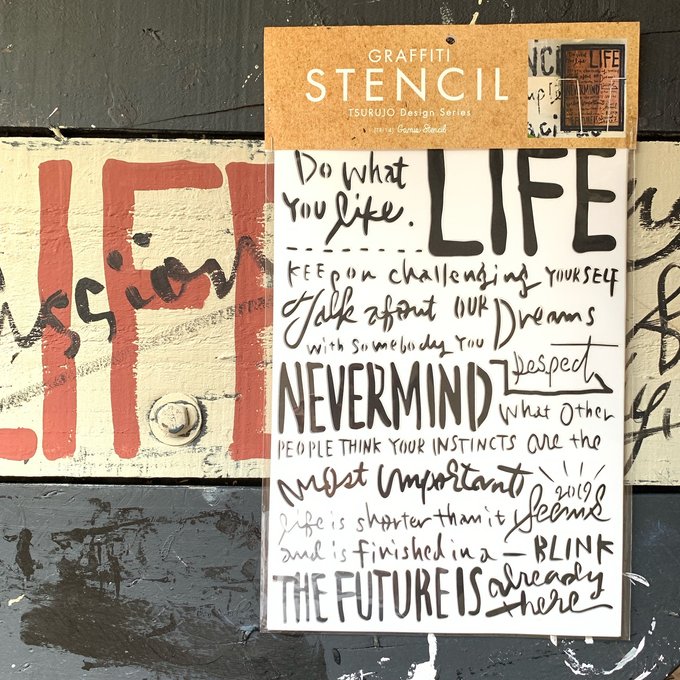 GRAFFITI
STENCIL
TSURUJO Design Series
Do what LIFE
You like.
KEEp on challenging YOURSELF
talk about OUR Dreams
with somebody You
NEVERMIND Respect
What Other
PEOPLE THINK YOUR INSTINCTS are the
most important
life is shorter than it seems 2019
and is finished in a — BLINK
THE FUTURE IS already here
LIFE
ssion